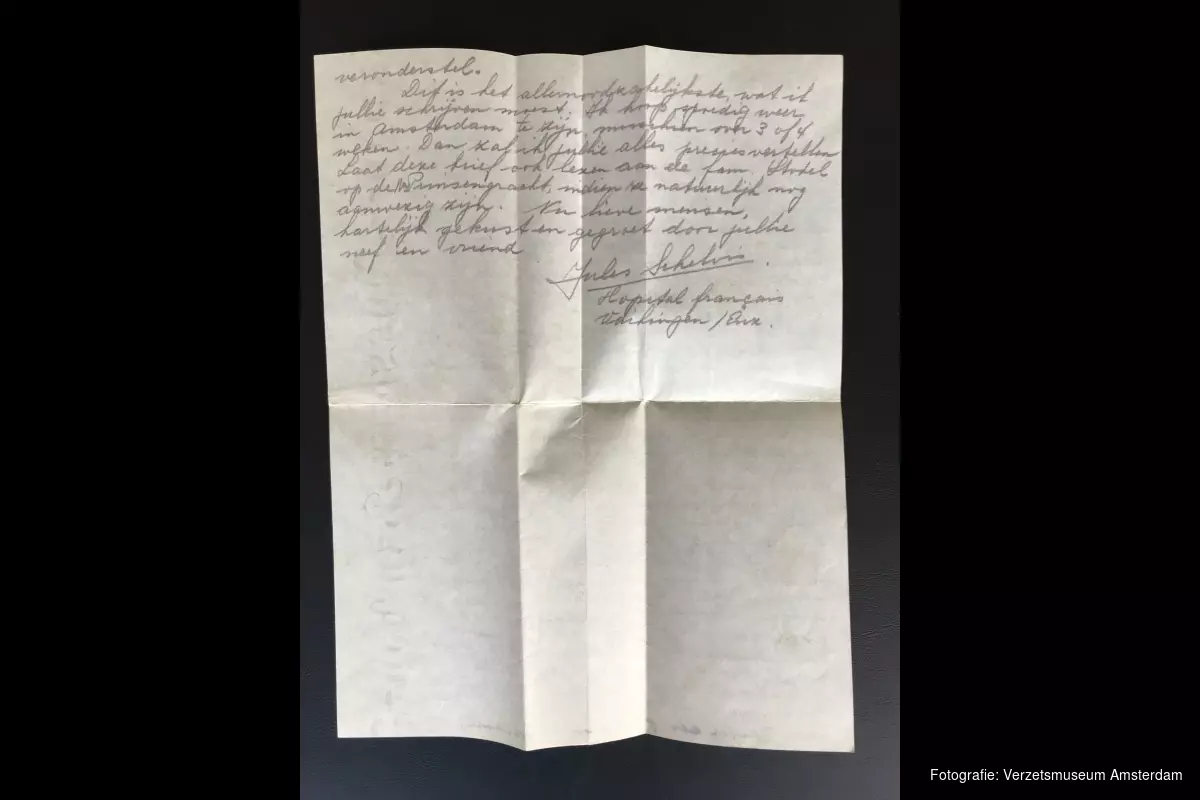 veronderstel.
Dit is het allernoodzakelijkste, wat ik
jullie schrijven moest. Ik hoop spoedig weer
in Amsterdam te zijn, misschien over 3 of 4
weken. Dan zal ik jullie alles precies vertellen
Laat deze brief ook lezen aan de fam. Stodel
op de Prinsengracht, indien ze natuurlijk nog
aanwezig zijn. Nu lieve mensen,
hartelijk gekust en gegroet door jullie
neef en vriend
Jules Schelvis.
Hopital français
Vaihingen / Enz.
Fotografie: Verzetsmuseum Amsterdam